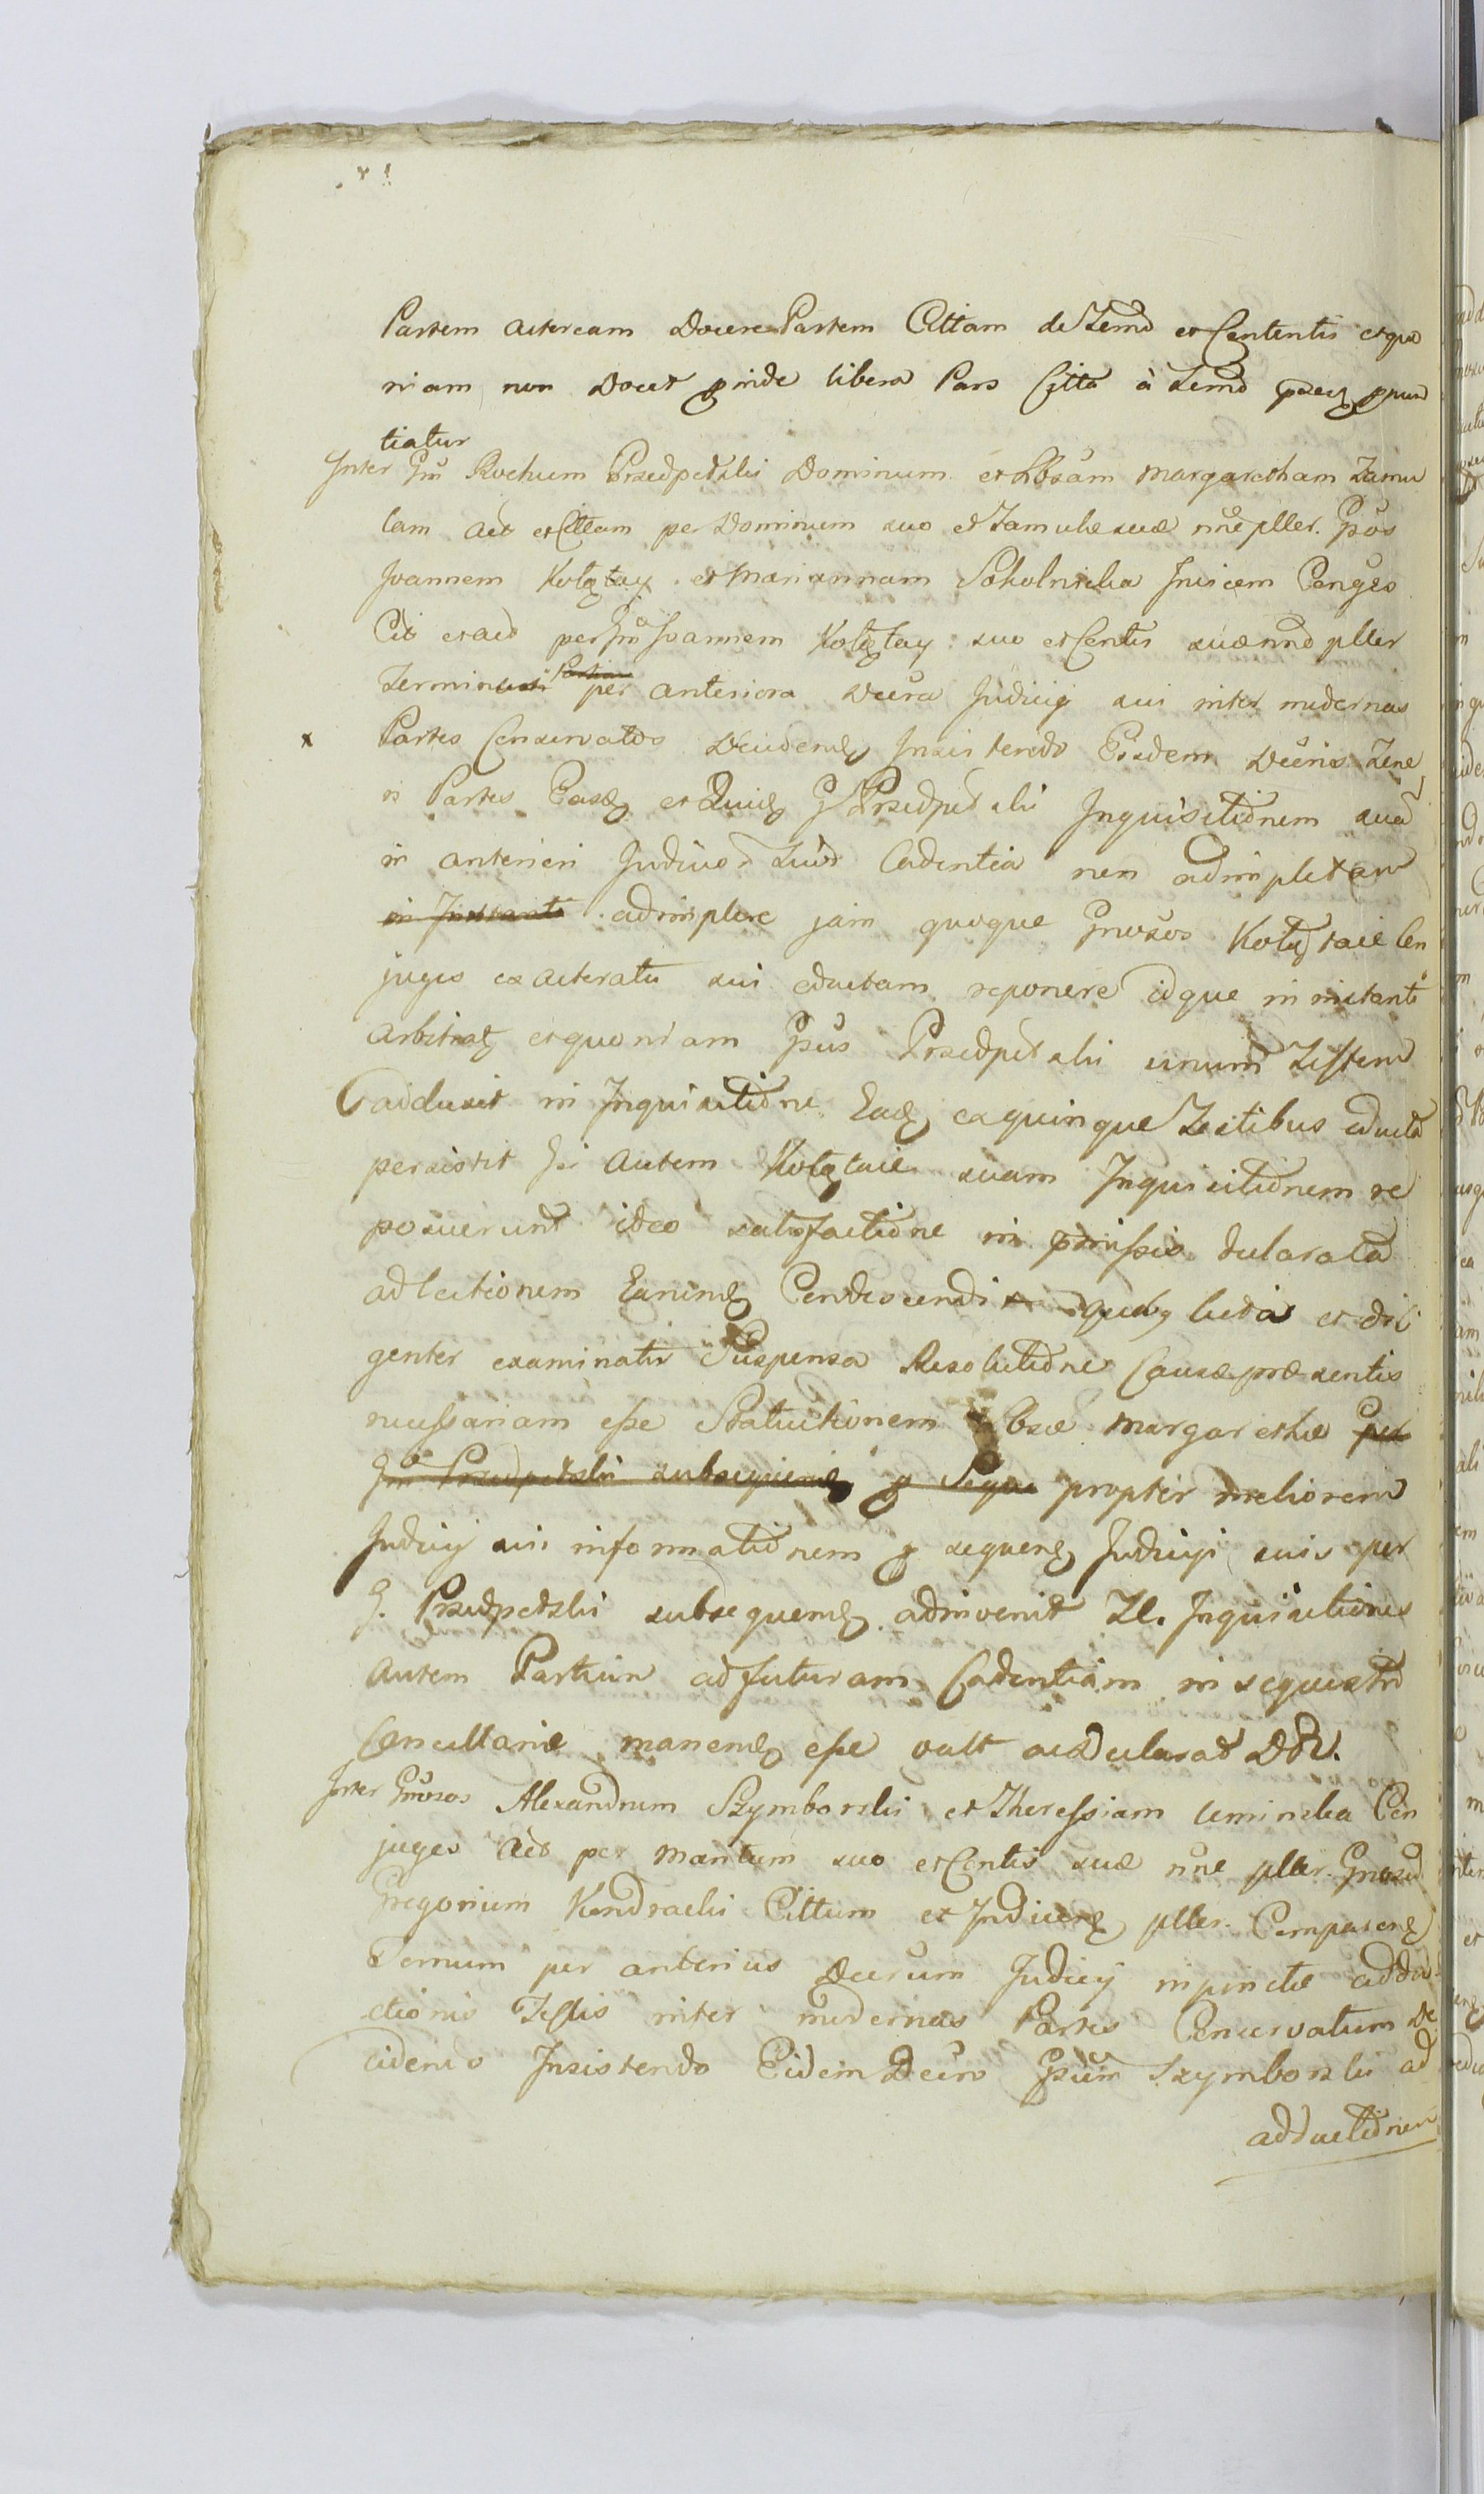 Partem Actoream Docere Partem Cittam de Termō et Contentis et quo
niam non Docet proinde libera Pars Citta à Termō pronun
tiatur
Inter Gm̃ Rochum Przedpełski Dominum et Lbsam Margaretham Famu
lam Act et Cittam per Dominum suo et Famulæ suæ nñe pller. Gsos
Joannem Kołątay et Mariannam Sokolnicka Invicem Conges
Cit et act per Gm̃ Joannem Kołątay suo et Contis suæ nnē pller
Terminum per anteriora Decra Judicij sui inter modernas
x Partes Conservatos Decidendo Insistendo Eisdem Decris Tene
ri Partes Easq et Quidē G Przedpełski Inquisitiōnem suā
in anteriori Judiciorū suorū Cadentia non adimpletam
in Instanti adimplere jam quoque Gnosos Kołątaie Con
juges ex acteratu sui eductam reponere idque in instanti
Arbitratq et quoniam Gsus Przedpełski unum Testem
adduxit in Inquisitiōne Eadq ex quinque Testibus educta
persistit Gi Autem Kołątaie suam Inquisitiōnem re
posuerunt ideo satisfactiōne in prmissis declarata
ad lectionem Earundq Condescendi quibq lectis et dili
genter examinatis Suspensa Resolutiōne Causæ præsentis
necessariam esse Statuitionem Lbsæ Margarethæ per
Gm̃ Przedpełski subsequendq p Sequen propter meliorem
Judicij sui informatiōnem p sequendq Judicijs suis per
G. Przedpełski subsequendq adinvenit Tl. Inquisitiones
Autem Partium ad futuram Cadentiam in sequestrō
Cancellariæ manendq esse vult ac Declarat DPV.
Inter Gnosos Alexandrum Szymborski et Theressiam Ceminska Con
juges Act per Maritum suo et Contis suæ nñe pller. Gnosum
Gregorium Kondracki Cittum et Judicendq pller. Comparendq
Termum per anterius Decrum Judicij in puncto addu
ctionis Testis inter modernas Partes Conservatum De
cidendo Insistendo Eidem Decro Gsum Szymborski ad
adductiōnem